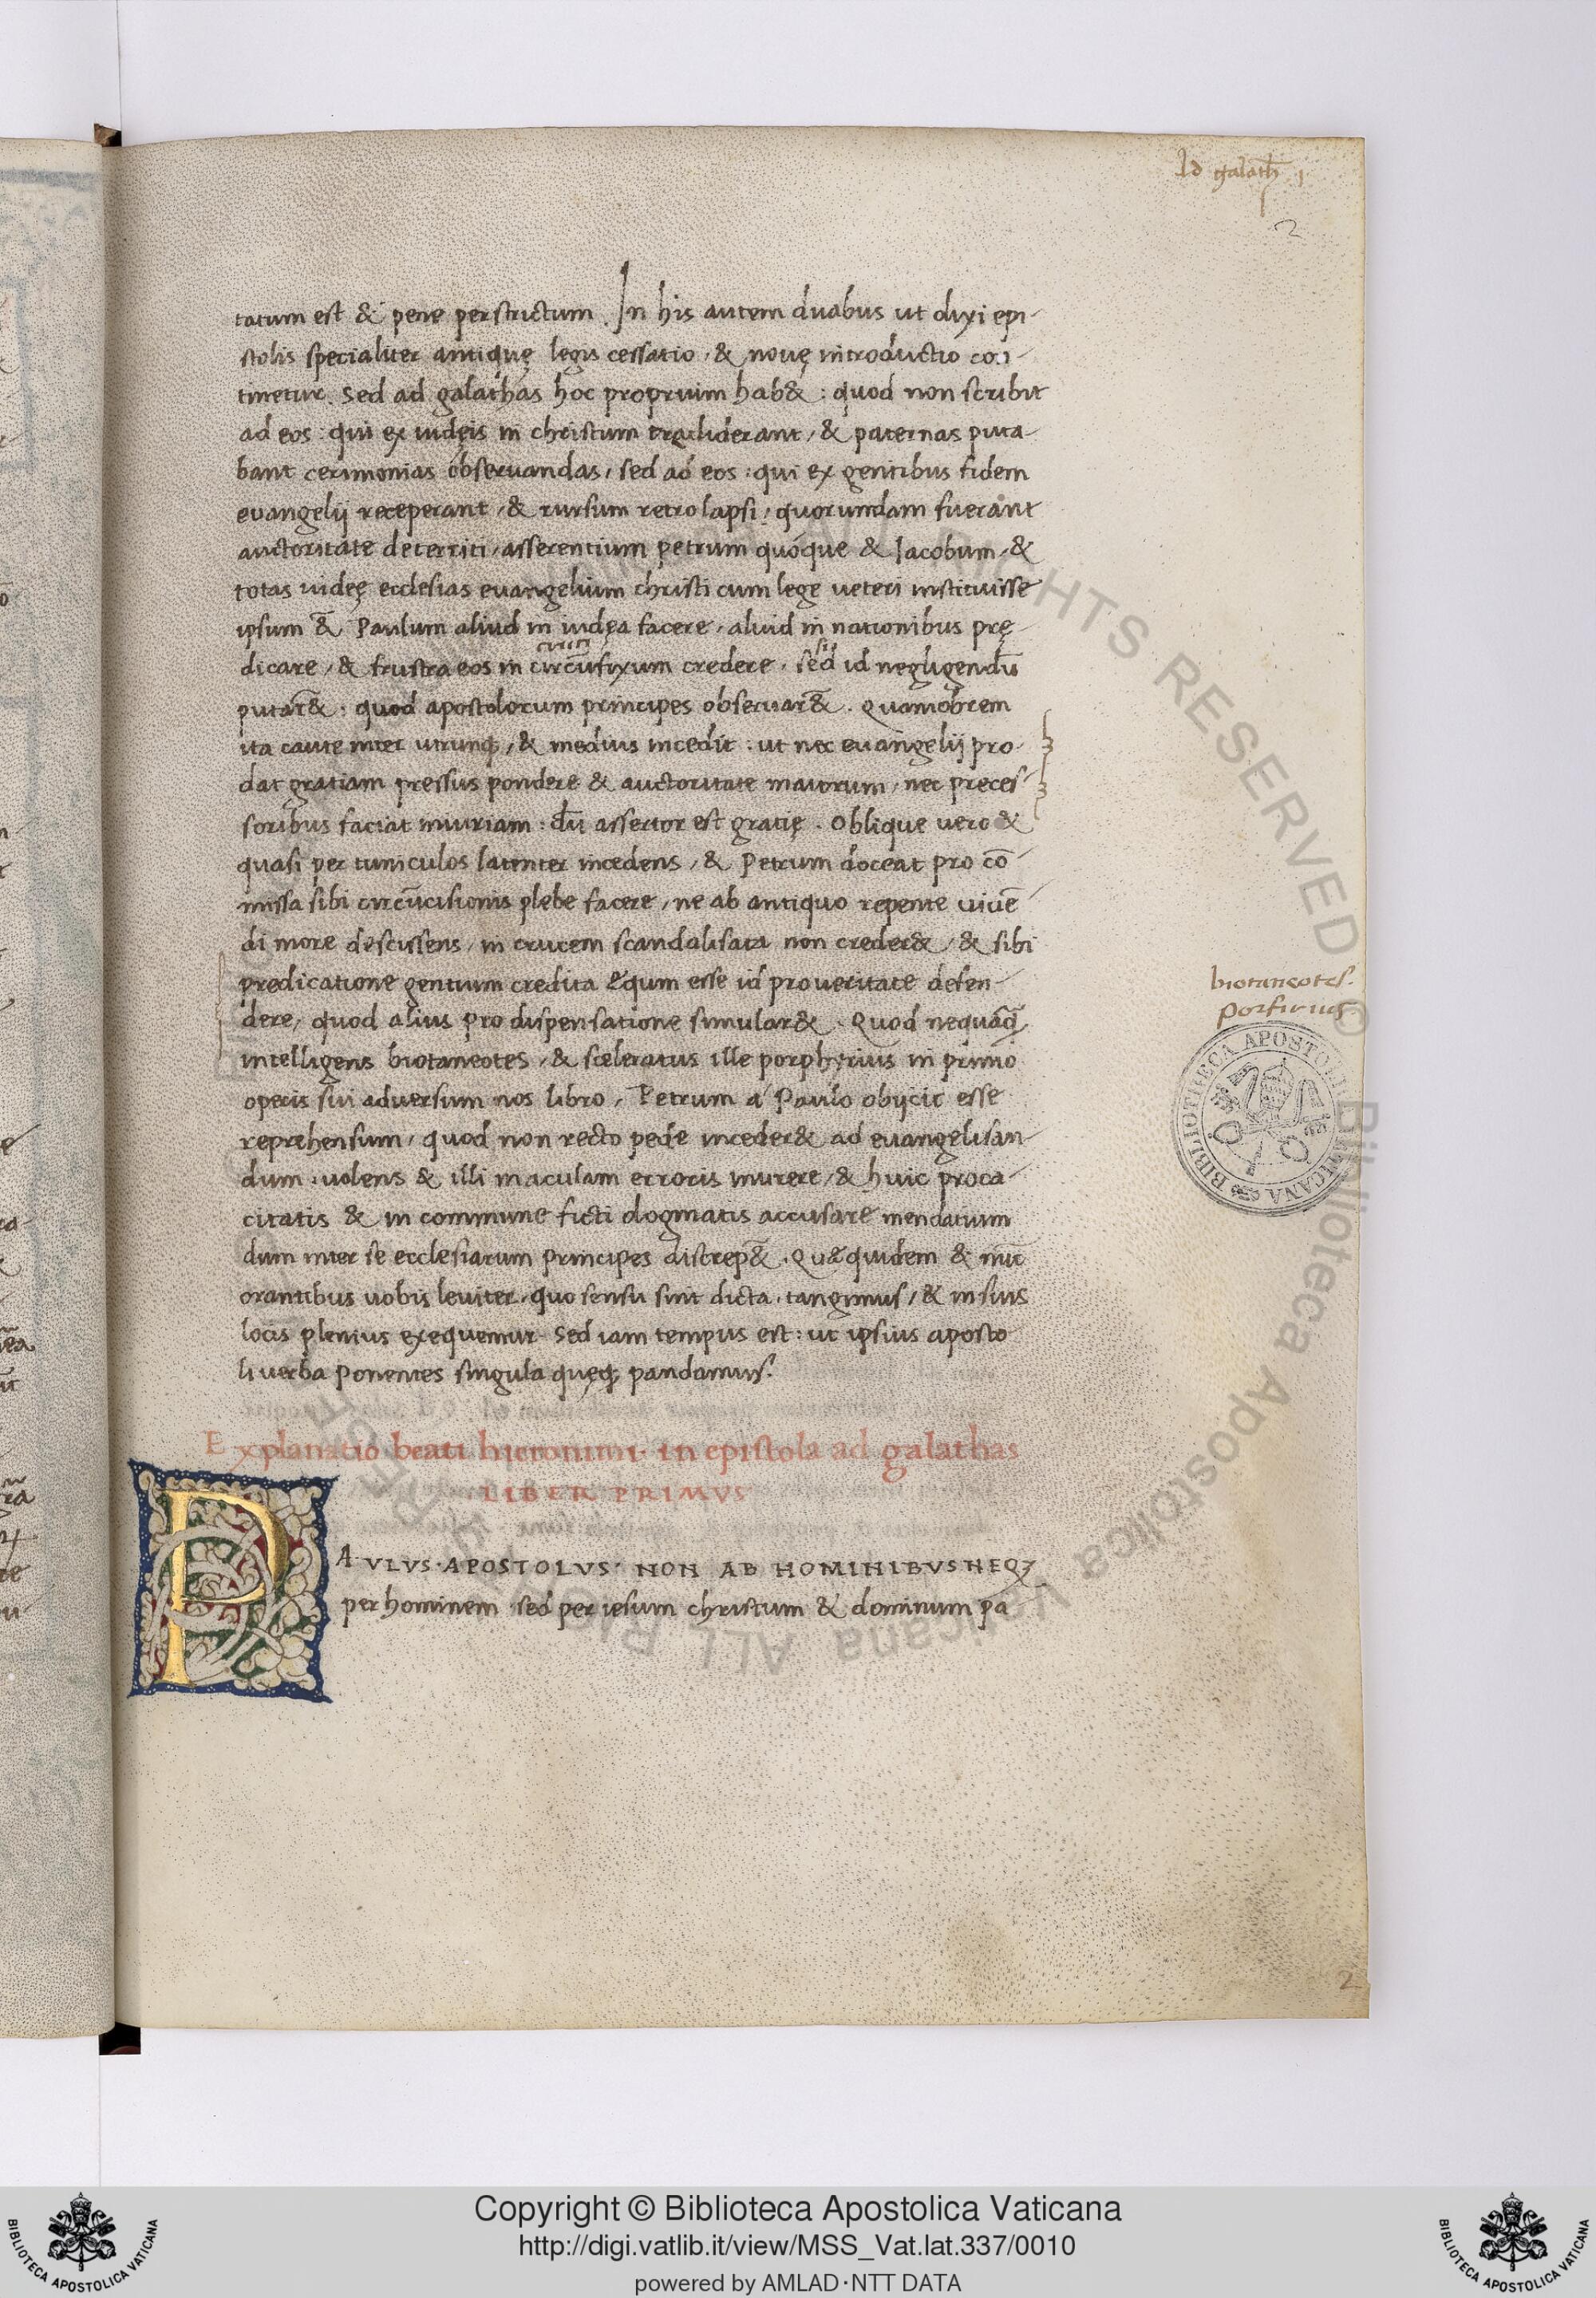 Ad galath 1
2
tatum est & pene perstrictum. In his autem duabus ut dixi epi-
stolis specialiter antiquę legis cessatio, & nouę introductio con-
tinetur. Sed ad galathas hoc proprium hab&: quod non scribit
ad eos: qui ex iudęis in christum crediderant, & paternas puta-
bant cerimonias obseruandas, sed ad eos: qui ex gentibus fidem
euangelij receperant, & rursum retro lapsi: quorumdam fuerant
auctoritate deterriti, asserentium petrum quoque & Iacobum, &
totas iudeę ecclesias euangelium christi cum lege ueteri instituisse
ipsum &̄ Paulum aliud in iudęa facere, aliud in nationibus prę
cruci
si
dicare, & frustra eos in circūfixum credere, sed id negligendū
putar&̄: quod apostolorum principes obseruar&̄. Quamobrem
ita caute inter utrunq, & medius incedit: ut nec euangelij pro-
dat gratiam pressus pondere & auctoritate maiorum, nec preces-
soribus faciat iniuriam: dū assertor est gratię. Oblique uero &
quasi per cuniculos latenter incedens, & Petrum doceat pro cō-
missa sibi circūcisionis plebe facere, ne ab antiquo repente uiuē-
di more descissens, in crucem scandalisata non creder&, & sibi
predicatione gentium credita ęqum esse id pro ueritate defen-
dere, quod alius pro dispensatione simular&. Quod nequāq̄
intelligens biotaneotes, & sceleratus ille porphyrius in primo
biotaneotes.
porfirius
operis sui aduersum nos libro, Petrum a Paulo obijcit esse
reprehensum, quod non recto pede inceder& ad euangelisan-
dum. uolens & illi maculam erroris inurere, & huic proca-
citatis & in commune ficti dogmatis accusare mendatium
dum inter se ecclesiarum principes discrep&̄. Quæ quidem & nūc
orantibus uobis leuiter, quo sensu sint dicta, tangimus, & in suis
locis plenius exequemur. Sed iam tempus est: ut ipsius aposto
li uerba ponentes singula quęq, pandamus.
Explanatio beati hieronimi. in epistola ad galathas
LIBER PRIMVS
PAVLVS. APOSTOLVS. NON AB HOMINIBVS NEQ3
per hominem sed per iesum christum & dominum pa
2
BIBLIOTHECA APOSTOLICA VATICANA
© Biblioteca Apostolica Vaticana ALL RIGHTS RESERVED
Copyright © Biblioteca Apostolica Vaticana
http://digi.vatlib.it/view/MSS_Vat.lat.337/0010
powered by AMLAD·NTT DATA
BIBLIOTECA APOSTOLICA VATICANA
BIBLIOTECA APOSTOLICA VATICANA